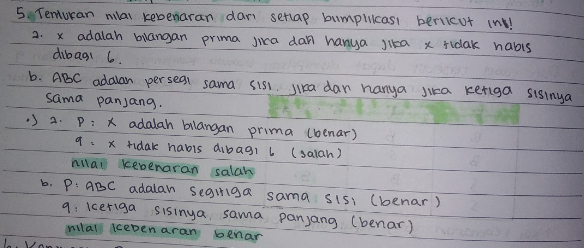 5. Tentukan nilai kebenaran dari setiap biimplikasi berikut ini!
a. x adalah bilangan prima jika dan hanya jika x tidak habis
dibagi 6.
b. ABC adalah persegi sama sisi jika dan hanya jika ketiga sisinya
sama panjang.
•) a. P : x adalah bilangan prima (benar)
q : x tidak habis dibagi 6 (salah)
nilai kebenaran salah
b. P : ABC adalah segitiga sama sisi (benar)
q : ketiga sisinya sama panjang (benar)
nilai kebenaran benar